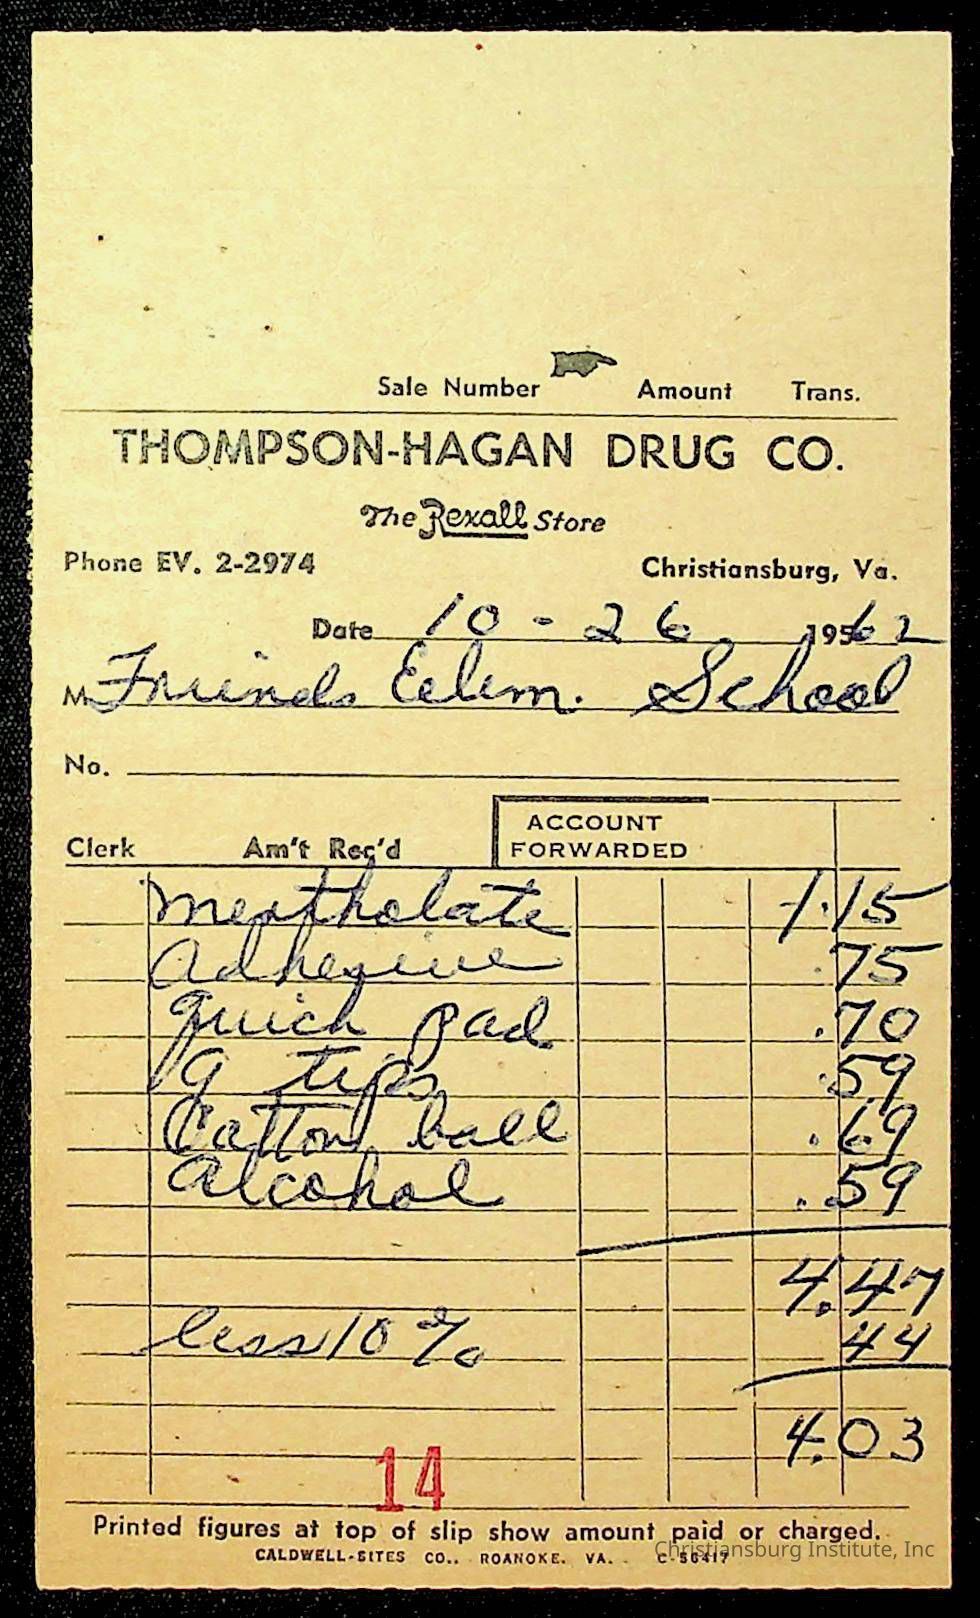 Sale Number Amount Trans.
THOMPSON-HAGAN DRUG CO.
The Rexall Store
Phone EV. 2-2974 Christiansburg, Va.
Date 10-26 19562
M Friends Elem. School
No.
ACCOUNT
Clerk Am't Rec'd FORWARDED
Merthiolate 1.15
Adhesive .75
quick pad .70
Q tips .59
Cotton ball .69
Alcohol .59
4.47
less 10% 44
4.03
14
Printed figures at top of slip show amount paid or charged.
Christiansburg Institute, Inc
CALDWELL-SITES CO., ROANOKE, VA. C-56417